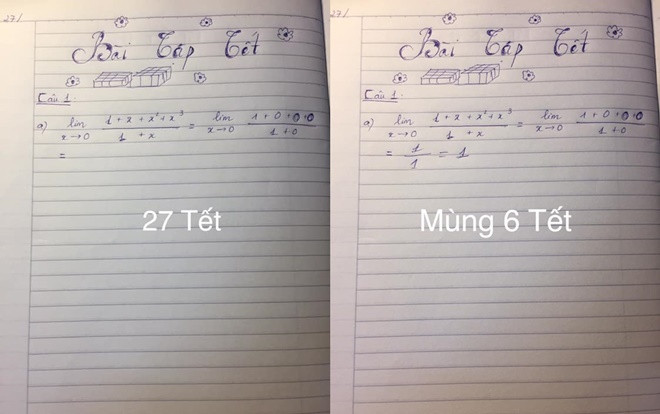 27/
Bài Tập Tết
Câu 1.
a) lim x→0 (1 + x + x² + x³)/(1 + x) = lim x→0 (1 + 0 + 0 + 0)/(1 + 0)
=
27 Tết
27/
Bài Tập Tết
Câu 1.
a) lim x→0 (1 + x + x² + x³)/(1 + x) = lim x→0 (1 + 0 + 0 + 0)/(1 + 0)
= 1/1 = 1
Mùng 6 Tết